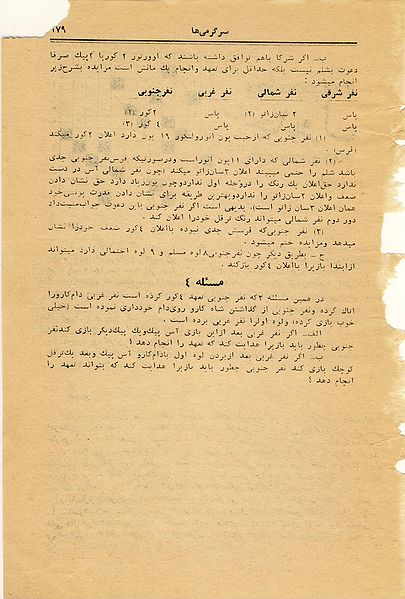 سرگرمی‌ها ۱۷۹
ب- اگر شرکا باهم توافق داشته باشند که اوورتور ۲ کور یا ۲ پیک صرفا
دعوت بشلم نیست بلکه حداقل برای تعهد وانجام یک مانش است مزایده بشرح‌زیر
انجام میشود :
نفر شرقی نفر شمالی نفر غربی نفرجنوبی
پاس ۲ سان‌زاتو (۲) پاس ۲کور (۱)
پاس پاس پاس ۴ کور (۳)
(۱) نفر جنوبی که ازحیث پون انورولکور ۱۹ پون دارد اعلان ۲کور میکند
(فرس) .
(۲) نفر شمالی که دارای ۱۱پون انوراست ودرصورتیکه فرس‌نفر جنوبی جدی
باشد شلم را حتمی میبیند اعلان ۳سان‌زاتو میکند (چون نفر شمالی آس در دست
ندارد حق‌اعلان یک رنگ را دروحله اول نداردوچون پون‌زیاد دارد حق نشان دادن
ضعف واعلان ۲سان‌زاتو را نداردوبهترین طریقه برای نشان دادن قدرت پونی‌خود
همان اعلان ۳سان‌زاتو است). بدیهی است اگر نفر جنوبی باین دعوت جواب‌مثبت‌داد
دور دوم نفر شمالی میتواند رنگ ترفل خودرا اعلان کند .
(۳) نفر جنوبی‌که فرسش جدی نبوده بااعلان ۴کور ضعف خودرا نشان
میدهد ومزایده ختم میشود .
ج - بطریق دیگر چون نفرجنوبی۸لوه مسلم و ۹ لوه احتمالی دارد میتواند
ازابتدا بازیرا بااعلان ۴کور بازکند.
مسئله ۴
در همین مسئله ۳که نفر جنوبی تعهد ۴کور کرده است نفر غربی دام‌کارورا
اتاك کرده ونفر جنوبی از گذاشتن شاه کارو روی‌دام خودداری نموده است (خیلی
خوب بازی کرده) ولوه اولرا نفر غربی برده است .
الف- اگر نفر غربی بعد ازاین بازی آس پیک‌ویک پیک‌دیگر بازی کندنفر
جنوبی چطور باید بازیرا هدایت کند که تعهد را انجام دهد ؟
ب- اگر نفر غربی بعد ازبردن لوه اول بادام‌کارو آس پیک وبعد یک‌ترفل
کوچك بازی کند نفر جنوبی چطور باید بازیرا هدایت کند که بتواند تعهد را
انجام دهد ؟